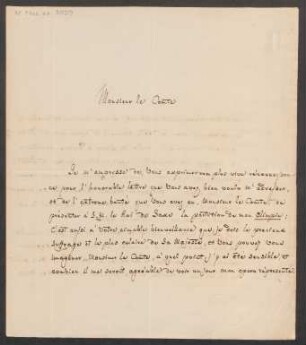 Monsieur le Comte
Je m'empresse de vous exprimer ma plus vive reconnaissan-
ce pour l'honorable lettre que vous avez bien voulu m'adresser,
et de l'extrême bonté que vous avez eu, Monsieur le Comte, de
présenter à S. M. le Roi de Saxe la partition de mon Olimpie:
C'est aussi à votre aimable bienveillance que je dois le précieux
suffrage et le plus éclairé de Sa Majesté, et vous pouvez vous
imaginer, Monsieur le Comte, à quel point j'y ai été sensible et
combien il me serait agréable de voir un jour mon opéra représenté